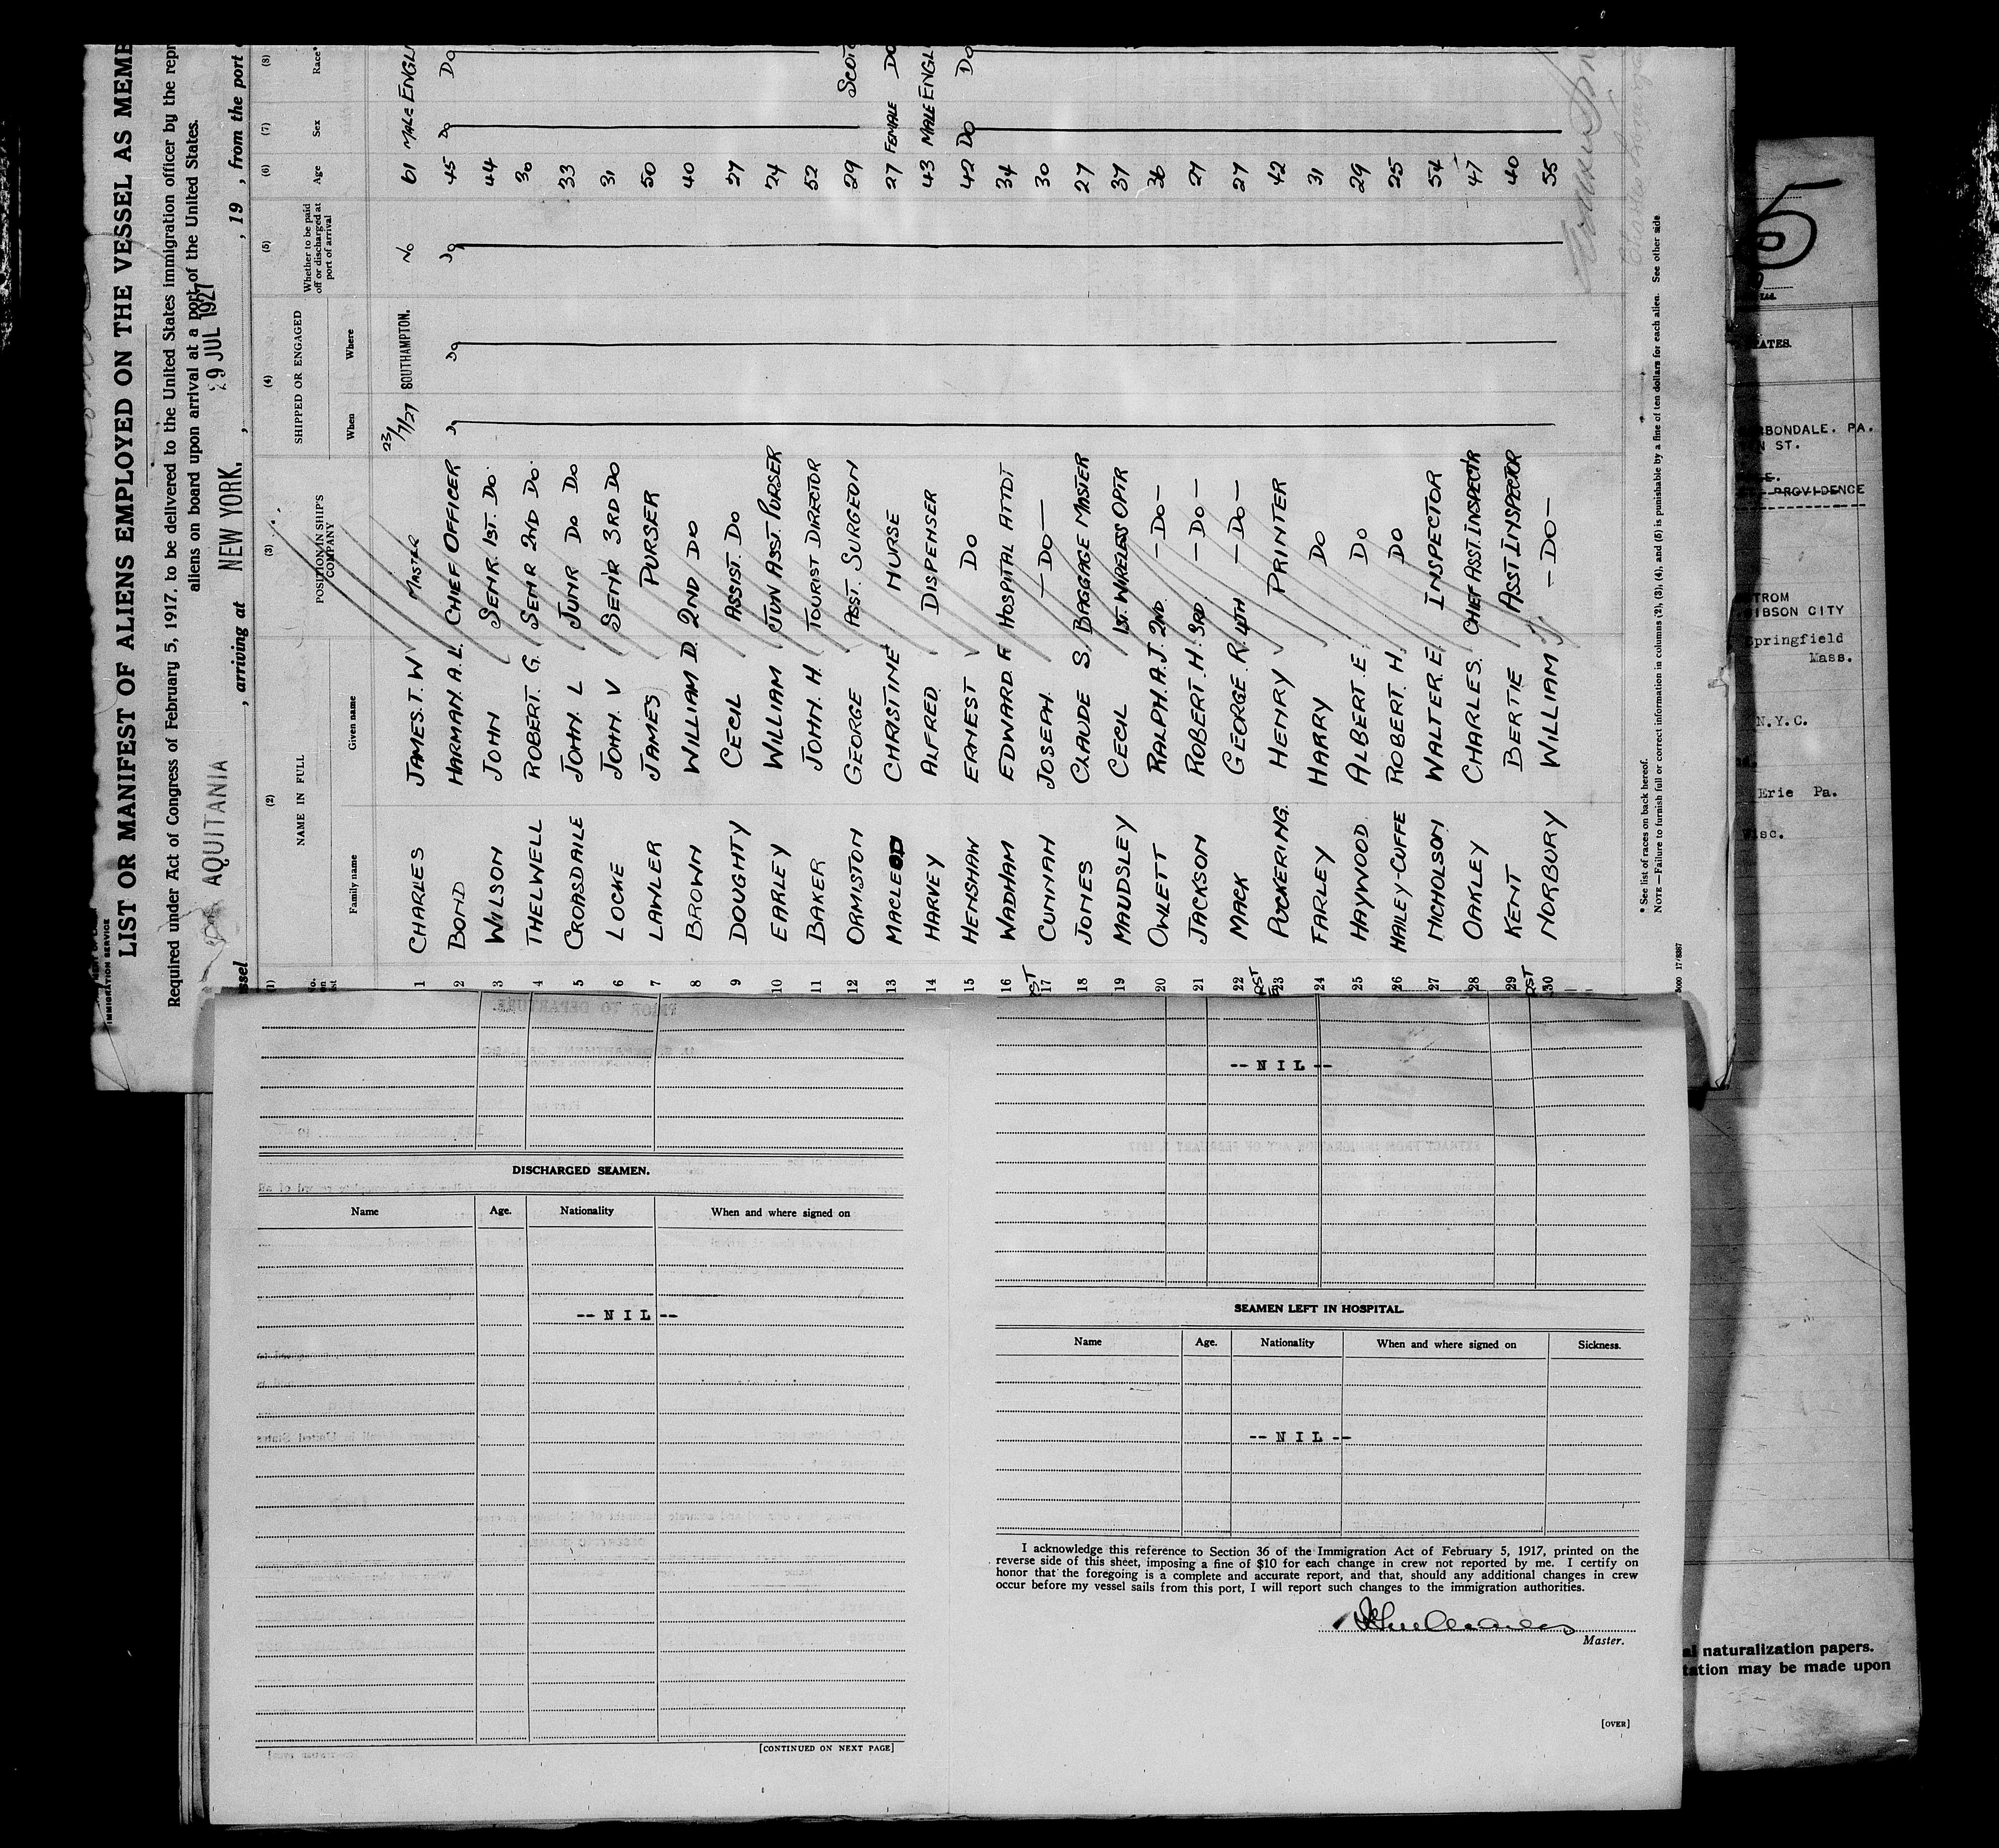 IMMIGRATION SERVICE
LIST OR MANIFEST OF ALIENS EMPLOYED ON THE VESSEL AS MEMB
Required under Act of Congress of February 5, 1917, to be delivered to the United States immigration officer by the repr
aliens on board upon arrival at a port of the United States.
AQUITANIA , arriving at NEW YORK. , 29 JUL 1927 , 19 , from the port
(2) (3) (4) (5) (6) (7) (8)
NAME IN FULL POSITION IN SHIP'S COMPANY SHIPPED OR ENGAGED Whether to be paid off or discharged at port of arrival Age Sex Race*
Family name Given name When Where
1 CHARLES JAMES. T. W MASTER 23/7/27 SOUTHAMPTON. No 61 MALE ENGL
2 BOND HARMAN. A. L. CHIEF OFFICER Do Do Do 45 Do Do
3 WILSON JOHN SENR. 1ST. Do. 44
4 THELWELL ROBERT. G. SENR 2ND Do. 30
5 CROASDAILE JOHN. L JUNR Do Do 33
6 LOCKE JOHN. V SENR 3RD Do 31
7 LAWLER JAMES PURSER 50
8 BROWN WILLIAM D. 2ND DO 40
9 DOUGHTY CECIL ASSIST. Do 27
10 EARLEY WILLIAM JUN ASST. PURSER 24
11 BAKER JOHN. H. TOURIST DIRECTOR 52
12 ORMISTON GEORGE ASST. SURGEON 29 SCOT
13 MACLEOD CHRISTINE NURSE 27 FEMALE DO
14 HARVEY ALFRED DISPENSER 43 MALE ENGL
15 HENSHAW ERNEST DO 42 Do Do
16 WADHAM EDWARD F HOSPITAL ATTDT 34
17 CUNNAH JOSEPH. —DO— 30
18 JONES CLAUDE S. BAGGAGE MASTER 27
19 MAUDSLEY CECIL 1ST. WIRELESS OPTR 37
20 OWLETT RALPH. A. J. 2ND. -DO- 36
21 JACKSON ROBERT. H. 3RD. -DO- 27
22 MACK GEORGE. R. 4TH -DO- 27
23 PUCKERING. HENRY PRINTER 42
24 FARLEY HARRY DO 31
25 HAYWOOD. ALBERT. E. DO 29
26 HAILEY-CUFFE ROBERT. H. DO 25
27 NICHOLSON WALTER. E. INSPECTOR 54
28 OAKLEY CHARLES. CHIEF ASST. INSPECTR 47
29 KENT BERTIE ASST INSPECTOR 40
30 NORBURY WILLIAM J. -DO- 55
* See list of races on back hereof.
NOTE.—Failure to furnish full or correct information in columns (2), (3), (4), and (5) is punishable by a fine of ten dollars for each alien. See other side.
DISCHARGED SEAMEN.
Name Age. Nationality When and where signed on
-- N I L --
[CONTINUED ON NEXT PAGE]
-- N I L --
SEAMEN LEFT IN HOSPITAL.
Name Age. Nationality When and where signed on Sickness.
-- N I L --
I acknowledge this reference to Section 36 of the Immigration Act of February 5, 1917, printed on the
reverse side of this sheet, imposing a fine of $10 for each change in crew not reported by me. I certify on
honor that the foregoing is a complete and accurate report, and that, should any additional changes in crew
occur before my vessel sails from this port, I will report such changes to the immigration authorities.
Master.
[OVER]
RBONDALE. PA.
N ST.
PROVIDENCE
TROM
IBSON CITY
Springfield
Mass.
N.Y.C.
Erie Pa.
naturalization papers.
tation may be made upon